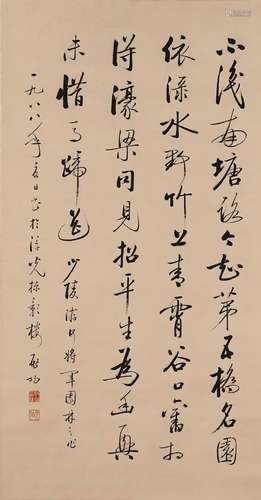 不識南塘路今知第五橋名園
依綠水野竹上青霄谷口舊相
得濠梁同見招平生為幽興
未惜馬蹄遙 少陵游何將軍園林之作
一九八八年夏日書於浮光掠影樓 啟功